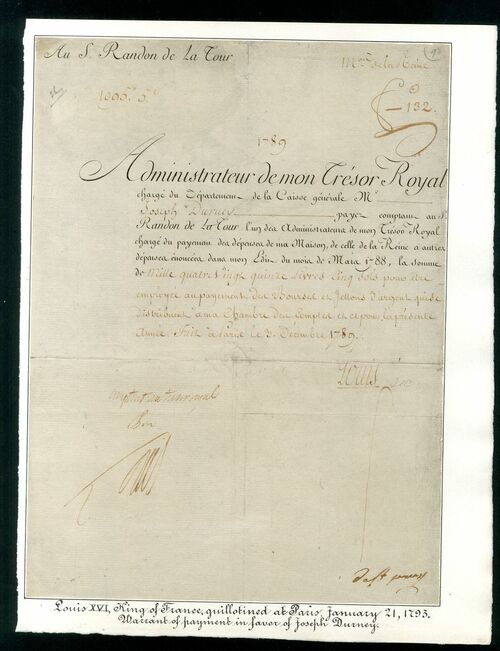 Au S. Randon de La Tour
M.on de la Reine
1095.tt 5.s
132.
1789
Administrateur de mon Trésor Royal
chargé du Département de la Caisse générale M.e
Joseph Durney payez comptant au S.
Randon de La Tour l'un des Administrateurs de mon Trésor Royal
chargé du payement des dépenses de ma Maison, de celle de la Reine & autres
dépenses énoncées dans mon Edit du mois de Mars 1788, la somme
de Mille quatre Vingt quinze Livres Cinq Sols pour être
employée au payement des Bourses et Jettons d'argent qui se
distribuent a ma Chambre des Comptes et ce pour la présente
Année. Fait à Paris le 3. Décembre 1789.
Louis
Bon
Louis XVI, King of France, guillotined at Paris, January 21, 1793.
Warrant of payment in favor of Joseph Durney.